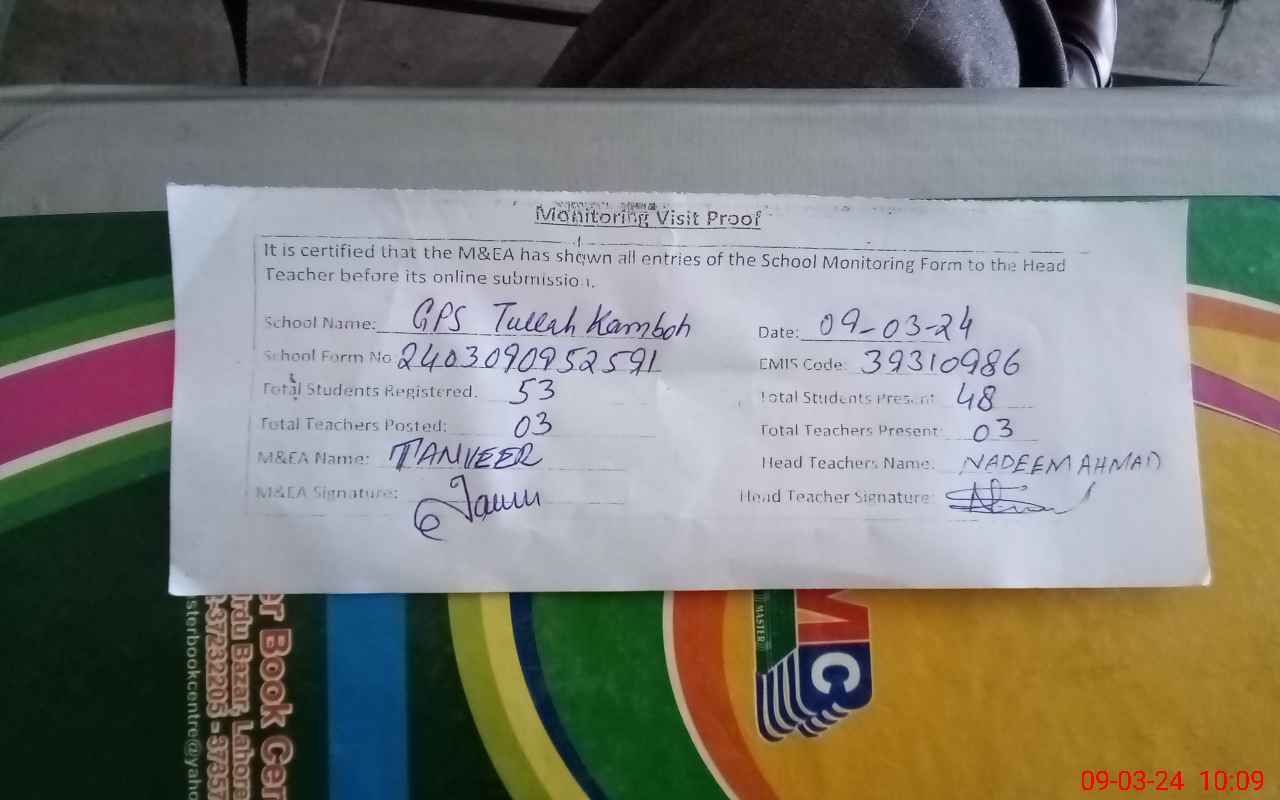 Monitoring Visit Proof
It is certified that the M&EA has shown all entries of the School Monitoring Form to the Head
Teacher before its online submission.
School Name: GPS Tullah Kamboh Date: 09-03-24
School Form No 2403090952591 EMIS Code: 39310986
Total Students Registered. 53 Total Students Present 48
Total Teachers Posted: 03 Total Teachers Present: 03
M&EA Name: TANVEER Head Teachers Name: NADEEM AHMAD
M&EA Signature: Head Teacher Signature:
er Book Cen
Urdu Bazar, Lahore
-37232205 - 37357
sterbookcentre@yaho
MASTER
MC
09-03-24 10:09